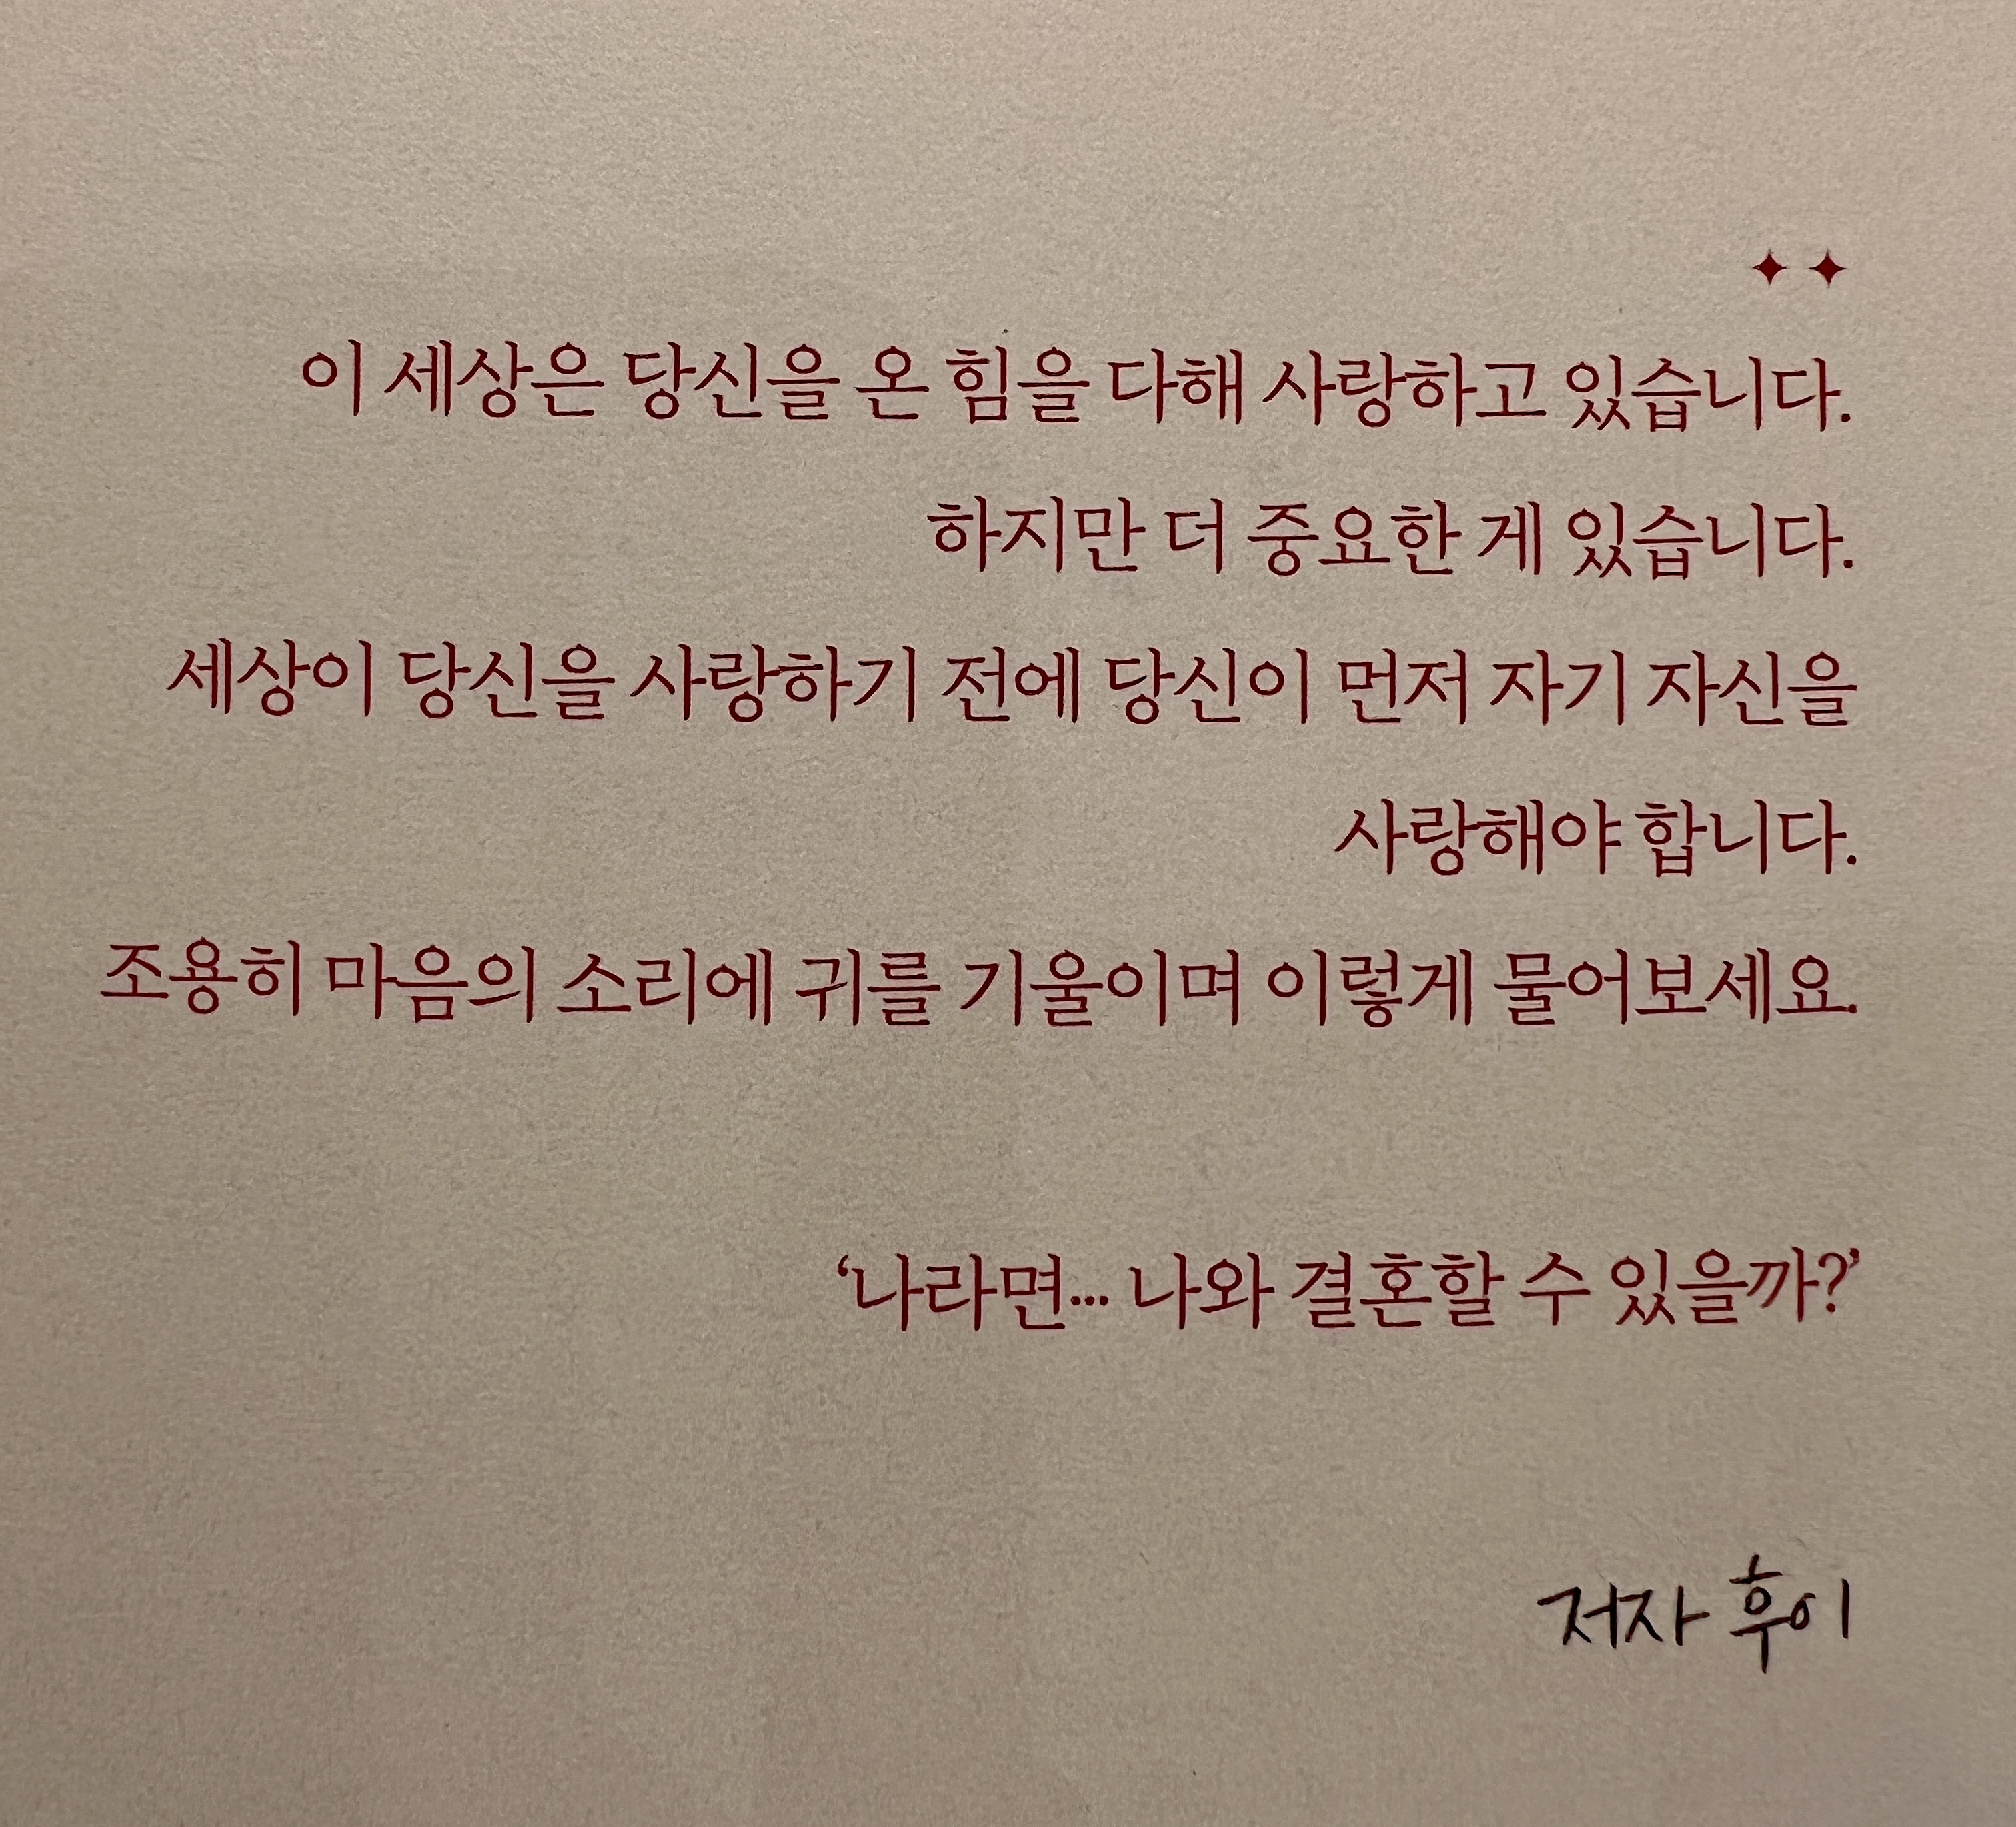 이 세상은 당신을 온 힘을 다해 사랑하고 있습니다.
하지만 더 중요한 게 있습니다.
세상이 당신을 사랑하기 전에 당신이 먼저 자기 자신을
사랑해야 합니다.
조용히 마음의 소리에 귀를 기울이며 이렇게 물어보세요.
‘나라면... 나와 결혼할 수 있을까?’
저자 후이